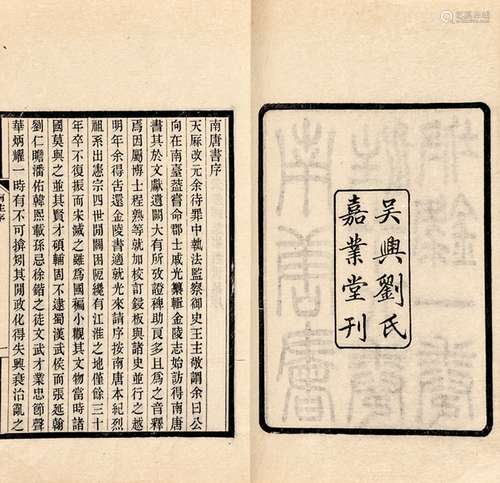 吳興劉氏
嘉業堂刊
南唐書序
天厤改元余待罪中執法監察御史王主敬謂余曰公
向在南臺蓋嘗命郡士戚光纂輯金陵志始訪得南唐
書其於文獻遺闕大有所攷證裨助良多且爲之音釋
焉因屬博士程熟等就加校訂鋟板與諸史並行之越
明年余得告還金陵書適就光來請序按南唐本紀烈
祖系出憲宗四世間關困阨纔有江淮之地僅餘三十
年卒不復振而宋滅之雖爲國褊小觀其文物當時諸
國莫與之並其賢才碩輔固不逮蜀漢武侯而張延翰
劉仁贍潘佑韓熙載孫忌徐鍇之徒文武才業忠節聲
華炳耀一時有不可揜矧其閒政化得失興衰治亂之